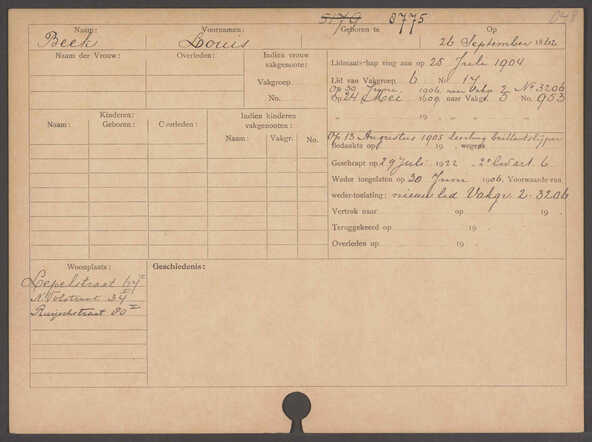 5179 8775
Naam: Voornamen: Geboren te Op
Beek Louis 26 September 1862
Naam der Vrouw: Overleden: Indien vrouw vakgenoote:
Vakgroep
No.
Lidmaatschap ving aan op 25 Juli 1904
Lid van Vakgroep 6 No. 17
Op 30 Juni 1906 naar Vakgr. 2 No 3206
Op 24 Mei 1909 naar Vakgr. 5 No. 953
" 19 , " " " "
Kinderen: Indien kinderen vakgenooten:
Naam: Geboren: Overleden: Naam: Vakgr. No.
Op 13 Augustus 1905 leerling briljantslijper
Bedankte op 19 , wegens
Geschrapt op 29 Juli 1922 2e kwart. 6
Weder toegelaten op 30 Juni 1906. Voorwaarde van
weder-toelating: nieuw lid Vakgr. 2. 3206
Vertrok naar op 19 .
Teruggekeerd op 19 .
Overleden op 19 .
Woonplaats: Geschiedenis:
Lepelstraat 64
N. Tolstraat 34
Ruijschstraat 80